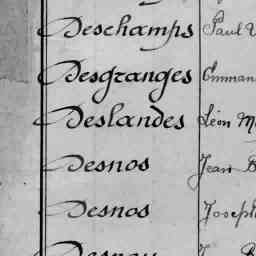 Deschamps Paul
Desgranges Emman
Deslandes Léon M
Desnos Jean B
Desnos Joseph